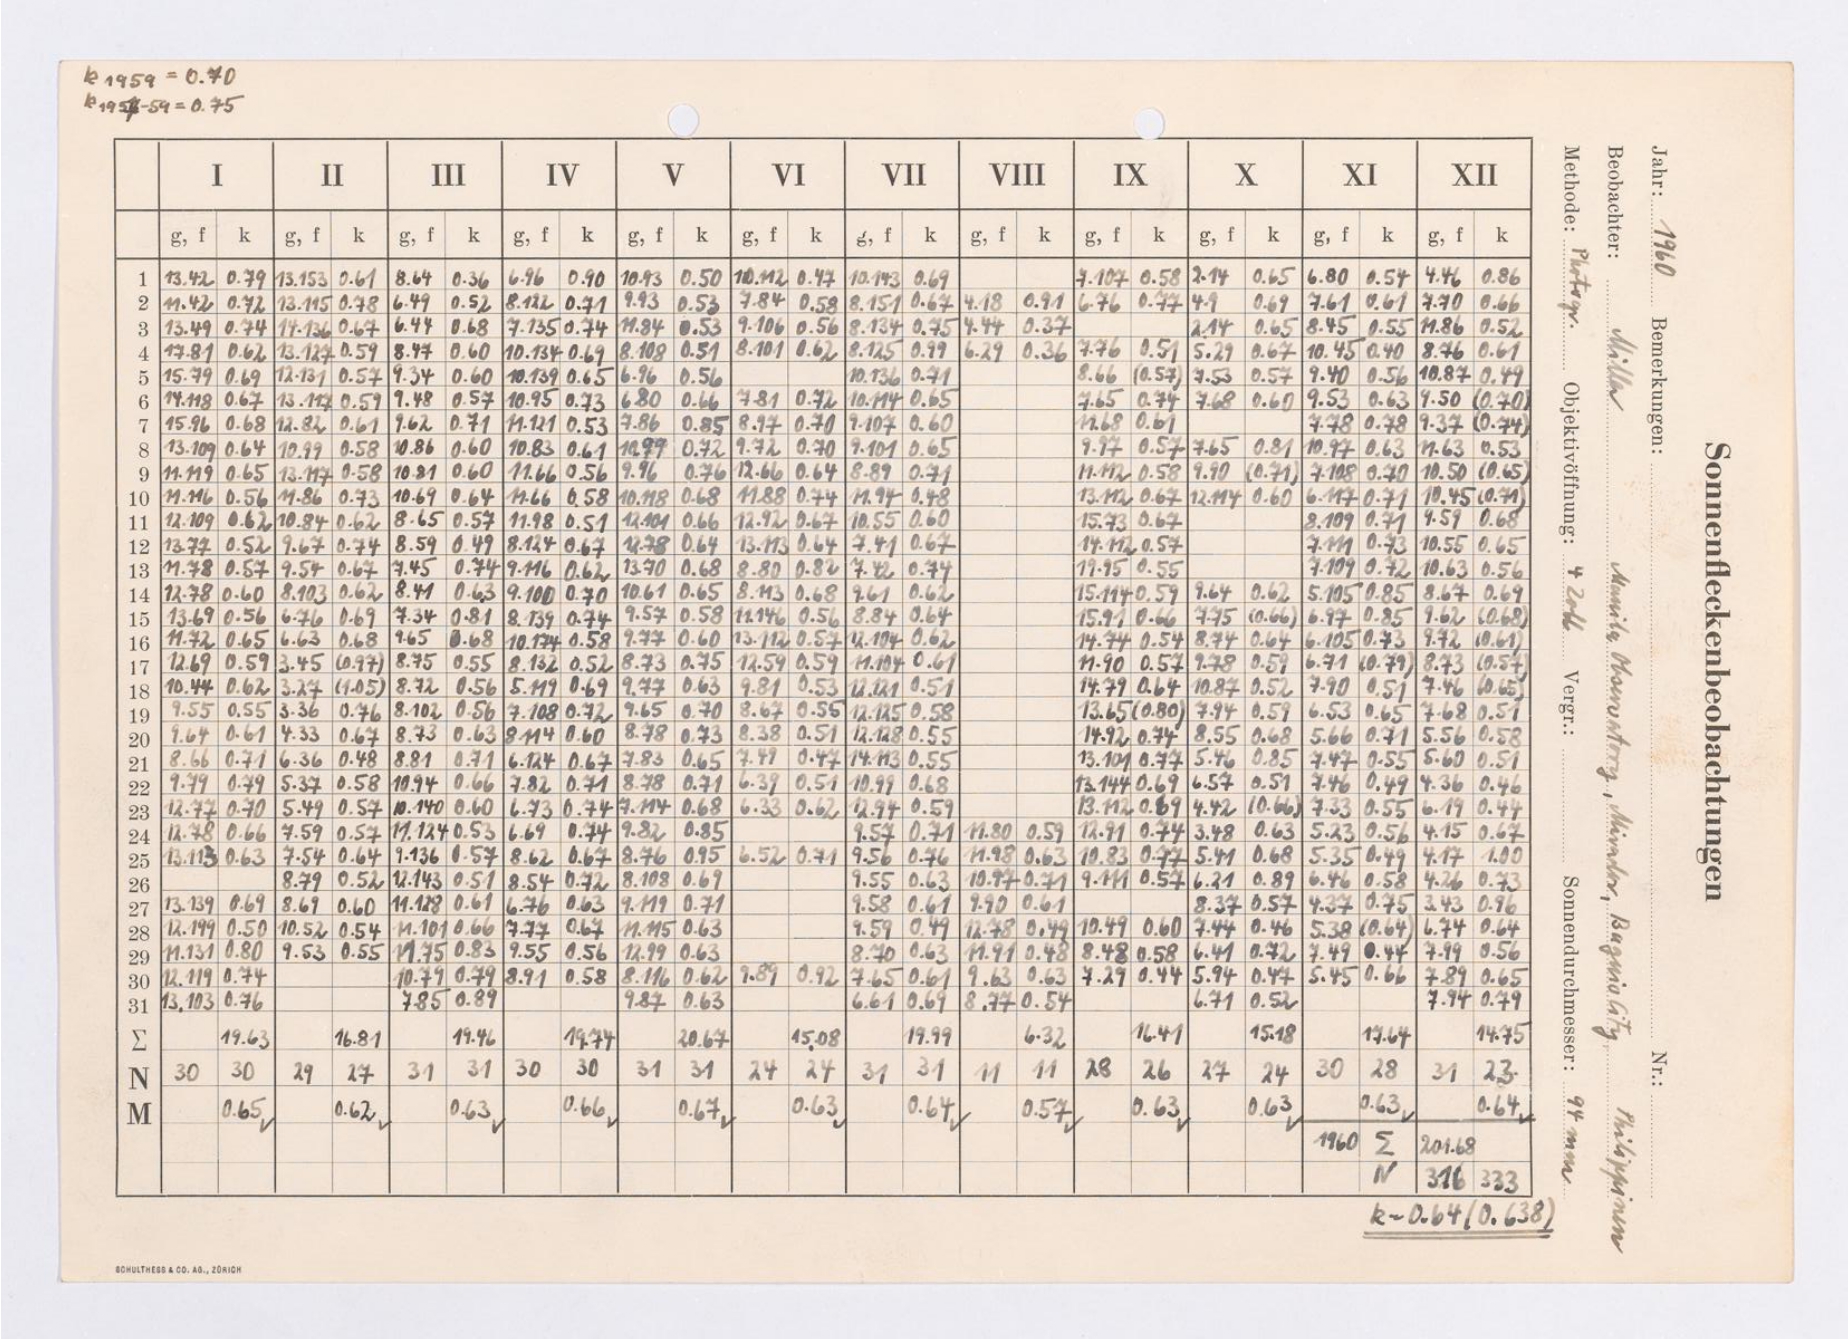 k 1959 = 0.70
k 1957-59 = 0.75
I II III IV V VI VII VIII IX X XI XII
g, f k g, f k g, f k g, f k g, f k g, f k g, f k g, f k g, f k g, f k g, f k g, f k
1 13.42 0.79 13.153 0.61 8.64 0.36 6.96 0.90 10.93 0.50 10.112 0.47 10.143 0.69 7.107 0.58 2.14 0.65 6.80 0.54 4.46 0.86
2 11.42 0.72 13.115 0.78 6.49 0.52 8.122 0.71 9.93 0.53 7.84 0.58 8.151 0.67 4.18 0.91 6.76 0.77 4.9 0.69 7.61 0.61 7.70 0.66
3 13.49 0.74 14.136 0.67 6.44 0.68 7.135 0.74 11.84 0.53 9.106 0.56 8.134 0.75 4.44 0.37 2.14 0.65 8.45 0.55 11.86 0.52
4 17.81 0.62 13.127 0.59 8.47 0.60 10.134 0.69 8.108 0.51 8.101 0.62 8.125 0.99 6.29 0.36 7.76 0.51 5.29 0.67 10.45 0.40 8.76 0.61
5 15.79 0.69 12.131 0.57 9.34 0.60 10.139 0.65 6.96 0.56 10.136 0.71 8.66 (0.57) 7.53 0.57 9.40 0.56 10.87 0.49
6 14.118 0.67 13.117 0.59 9.48 0.57 10.95 0.73 6.80 0.66 7.81 0.72 10.114 0.65 7.65 0.74 7.68 0.60 9.53 0.63 9.50 (0.70)
7 15.96 0.68 12.82 0.61 9.62 0.71 11.121 0.53 7.86 0.85 8.97 0.70 9.107 0.60 11.68 0.61 7.78 0.78 9.37 (0.74)
8 13.109 0.64 10.99 0.58 10.86 0.60 10.83 0.61 10.99 0.72 9.72 0.70 9.101 0.65 9.97 0.57 7.65 0.81 10.97 0.63 11.63 0.53
9 11.119 0.65 13.117 0.58 10.81 0.60 11.66 0.56 9.96 0.76 12.66 0.64 8.89 0.71 11.112 0.58 9.90 (0.71) 7.108 0.70 10.50 (0.65)
10 11.116 0.56 11.86 0.73 10.69 0.64 11.66 0.58 10.118 0.68 11.88 0.74 11.94 0.48 13.112 0.67 12.114 0.60 6.117 0.71 10.45 (0.71)
11 12.109 0.62 10.84 0.62 8.65 0.57 11.98 0.51 12.101 0.66 12.92 0.67 10.55 0.60 15.73 0.67 8.109 0.71 9.59 0.68
12 13.77 0.52 9.67 0.74 8.59 0.49 8.124 0.67 12.78 0.64 13.113 0.64 7.41 0.67 14.112 0.57 7.111 0.73 10.55 0.65
13 11.78 0.57 9.54 0.67 7.45 0.74 9.116 0.62 13.70 0.68 8.80 0.82 7.42 0.74 11.95 0.55 7.109 0.72 10.63 0.56
14 12.78 0.60 8.103 0.62 8.41 0.63 9.100 0.70 10.61 0.65 8.113 0.68 9.61 0.62 15.114 0.59 9.64 0.62 5.105 0.85 8.67 0.69
15 13.69 0.56 6.76 0.69 7.34 0.81 8.139 0.74 9.57 0.58 11.146 0.56 8.84 0.64 15.91 0.66 7.75 (0.66) 6.97 0.85 9.62 (0.68)
16 11.72 0.65 6.63 0.68 9.65 0.68 10.174 0.58 9.77 0.60 13.112 0.57 12.104 0.62 14.74 0.54 8.74 0.64 6.105 0.73 9.72 (0.61)
17 12.69 0.59 3.45 (0.97) 8.75 0.55 8.132 0.52 8.73 0.75 12.59 0.59 11.104 0.61 11.90 0.57 9.78 0.59 6.71 (0.79) 8.73 (0.57)
18 10.44 0.62 3.27 (1.05) 8.72 0.56 5.119 0.69 9.77 0.63 9.81 0.53 12.121 0.51 14.79 0.64 10.87 0.52 7.90 0.51 7.46 (0.65)
19 9.55 0.55 3.36 0.76 8.102 0.56 7.108 0.72 9.65 0.70 8.67 0.55 12.125 0.58 13.65 (0.80) 7.94 0.59 6.53 0.65 7.68 0.51
20 9.64 0.61 4.33 0.67 8.73 0.63 8.114 0.60 8.78 0.73 8.38 0.51 12.128 0.55 14.92 0.74 8.55 0.68 5.66 0.71 5.56 0.58
21 8.66 0.71 6.36 0.48 8.81 0.71 6.124 0.67 7.83 0.65 7.49 0.47 14.113 0.55 13.101 0.77 5.46 0.85 7.47 0.55 5.60 0.51
22 9.79 0.79 5.37 0.58 10.94 0.66 7.82 0.71 8.78 0.71 6.39 0.51 10.99 0.68 13.144 0.69 6.57 0.51 7.46 0.49 4.36 0.46
23 12.77 0.70 5.49 0.57 10.140 0.60 6.73 0.74 7.114 0.68 6.33 0.62 12.94 0.59 13.112 0.69 4.42 (0.66) 7.33 0.55 6.19 0.44
24 12.78 0.66 7.59 0.57 11.124 0.53 6.69 0.74 9.82 0.85 9.57 0.71 11.80 0.59 12.91 0.74 3.48 0.63 5.23 0.56 4.15 0.67
25 13.113 0.63 7.54 0.64 9.136 0.57 8.62 0.67 8.76 0.95 6.52 0.71 9.56 0.76 11.98 0.63 10.83 0.77 5.41 0.68 5.35 0.49 4.17 1.00
26 8.79 0.52 12.143 0.51 8.54 0.72 8.108 0.69 9.55 0.63 10.97 0.71 9.111 0.57 6.21 0.89 6.46 0.58 4.26 0.73
27 13.139 0.69 8.69 0.60 11.128 0.61 6.76 0.63 9.119 0.71 9.58 0.61 9.90 0.61 8.37 0.57 4.37 0.75 3.43 0.96
28 12.199 0.50 10.52 0.54 11.101 0.66 7.77 0.67 11.115 0.63 9.59 0.49 12.78 0.49 10.49 0.60 7.44 0.46 5.38 (0.64) 6.74 0.64
29 11.131 0.80 9.53 0.55 11.75 0.83 9.55 0.56 12.99 0.63 8.70 0.63 11.91 0.48 8.48 0.58 6.41 0.72 7.49 0.44 7.99 0.56
30 12.119 0.74 10.79 0.79 8.91 0.58 8.116 0.62 9.89 0.92 7.65 0.61 9.63 0.63 7.29 0.44 5.94 0.47 5.45 0.66 7.89 0.65
31 13.103 0.76 7.85 0.89 9.87 0.63 6.61 0.69 8.77 0.54 6.71 0.52 7.94 0.79
Σ 19.63 16.81 19.46 19.74 20.67 15.08 19.99 6.32 16.41 15.18 17.64 14.75
N 30 30 29 27 31 31 30 30 31 31 24 24 31 31 11 11 28 26 27 24 30 28 31 23
M 0.65 0.62 0.63 0.66 0.67 0.63 0.64 0.57 0.63 0.63 0.63 0.64
1960 Σ 201.68
N 316 333
k = 0.64 (0.638)
SCHULTHESS & CO. AG., ZÜRICH
Sonnenfleckenbeobachtungen
Jahr: 1960 Bemerkungen: Nr.:
Beobachter: Miller Manila Observatory, Mirador, Baguio City Philippinen
Methode: Photogr. Objektivöffnung: 4 Zoll Vergr.: Sonnendurchmesser: 94 mm